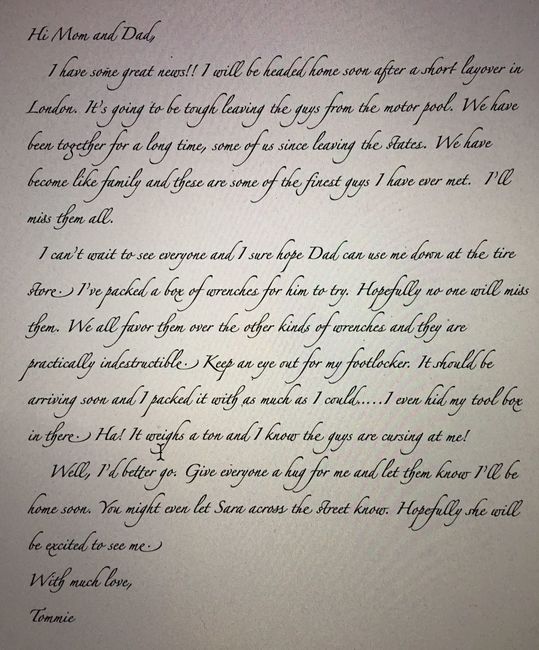 Hi Mom and Dad,
I have some great news!! I will be headed home soon after a short layover in
London. It's going to be tough leaving the guys from the motor pool. We have
been together for a long time, some of us since leaving the states. We have
become like family and these are some of the finest guys I have ever met. I'll
miss them all.
I can't wait to see everyone and I sure hope Dad can use me down at the tire
store. I've packed a box of wrenches for him to try. Hopefully no one will miss
them. We all favor them over the other kinds of wrenches and they are
practically indestructible. Keep an eye out for my footlocker. It should be
arriving soon and I packed it with as much as I could.....I even hid my tool box
in there. Ha! It weighs a ton and I know the guys are cursing at me!
Well, I'd better go. Give everyone a hug for me and let them know I'll be
home soon. You might even let Sara across the street know. Hopefully she will
be excited to see me.
With much love,
Tommie